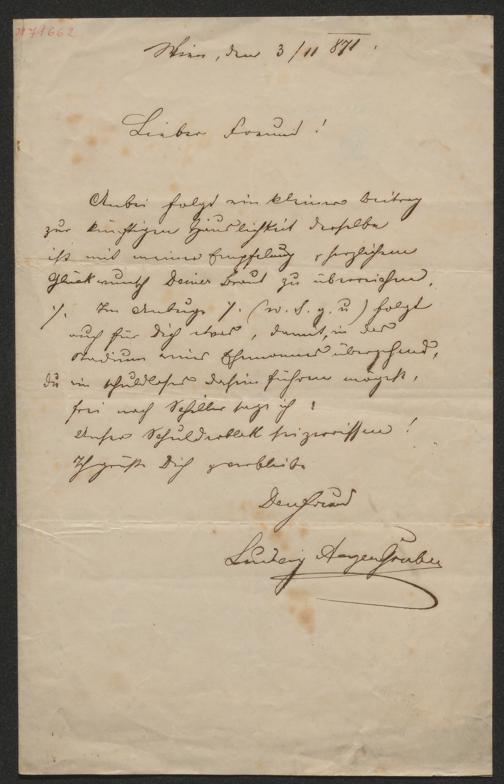 N 71662
Wien, den 3/11 871.
Lieber Freund!
Anbei folgt ein kleiner Beitrag
zur künftigen Häuslichkeit derselbe
ist mit meiner Empfehlung & herzlichem
Glückwunsch Deiner Braut zu überreichen.
./. Im Anbuge ./. (w. S. g. u) folgt
auch für Dich etwas, damit, in das
Stadium eines Ehemannes übergehend,
du ein schuldloses Dasein führen mögest,
frei nach Schiller sage ich:
Unser Schuldenblatt sei zerrissen!
Ich grüße Dich & verbleibe
Dein Freund
Ludwig Anzengruber